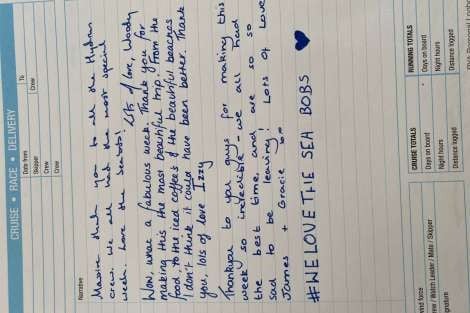 CRUISE • RACE • DELIVERY
Date from
To
Skipper
Crew
Crew
Crew
Narrative
Massive thank you to all the
crew we all had the most special
week. Love the Seabobs! Lots of love, Woody
Wow, what a fabulous week. Thank you for
making this the most beautiful trip. From the
food, to the iced coffee's & the beautiful beaches
I don't think it could have been better. Thank
you, lots of love Izzy
Thankyou to you guys for making this
week so incredible - we all had
the best time and are so so
sad to be leaving! Lots of Love
James + Gracie
#WELOVETHE SEA BOBS
CRUISE TOTALS
Days on board
Night hours
Distance logged
RUNNING TOTALS
Days on board
Night hours
Distance logged
wind force
Crew / Watch Leader / Mate / Skipper